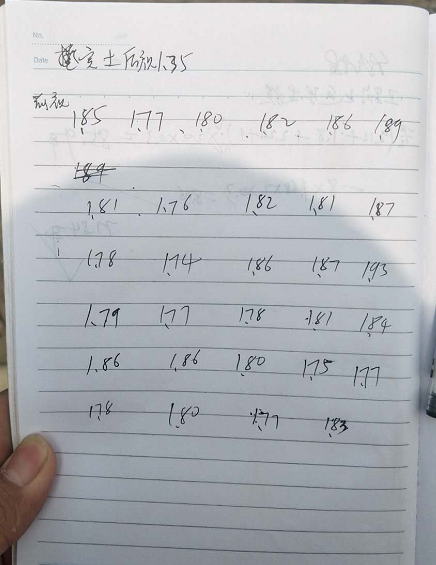 No.
Date 宝土后视1.35
前视
1.85 1.77 1.80 1.82 1.86 1.89
1.89
1.81 1.76 1.82 1.81 1.87
1.78 1.74 1.86 1.87 1.93
1.79 1.77 1.78 1.81 1.84
1.86 1.86 1.80 1.75 1.77
1.78 1.80 1.77 1.83